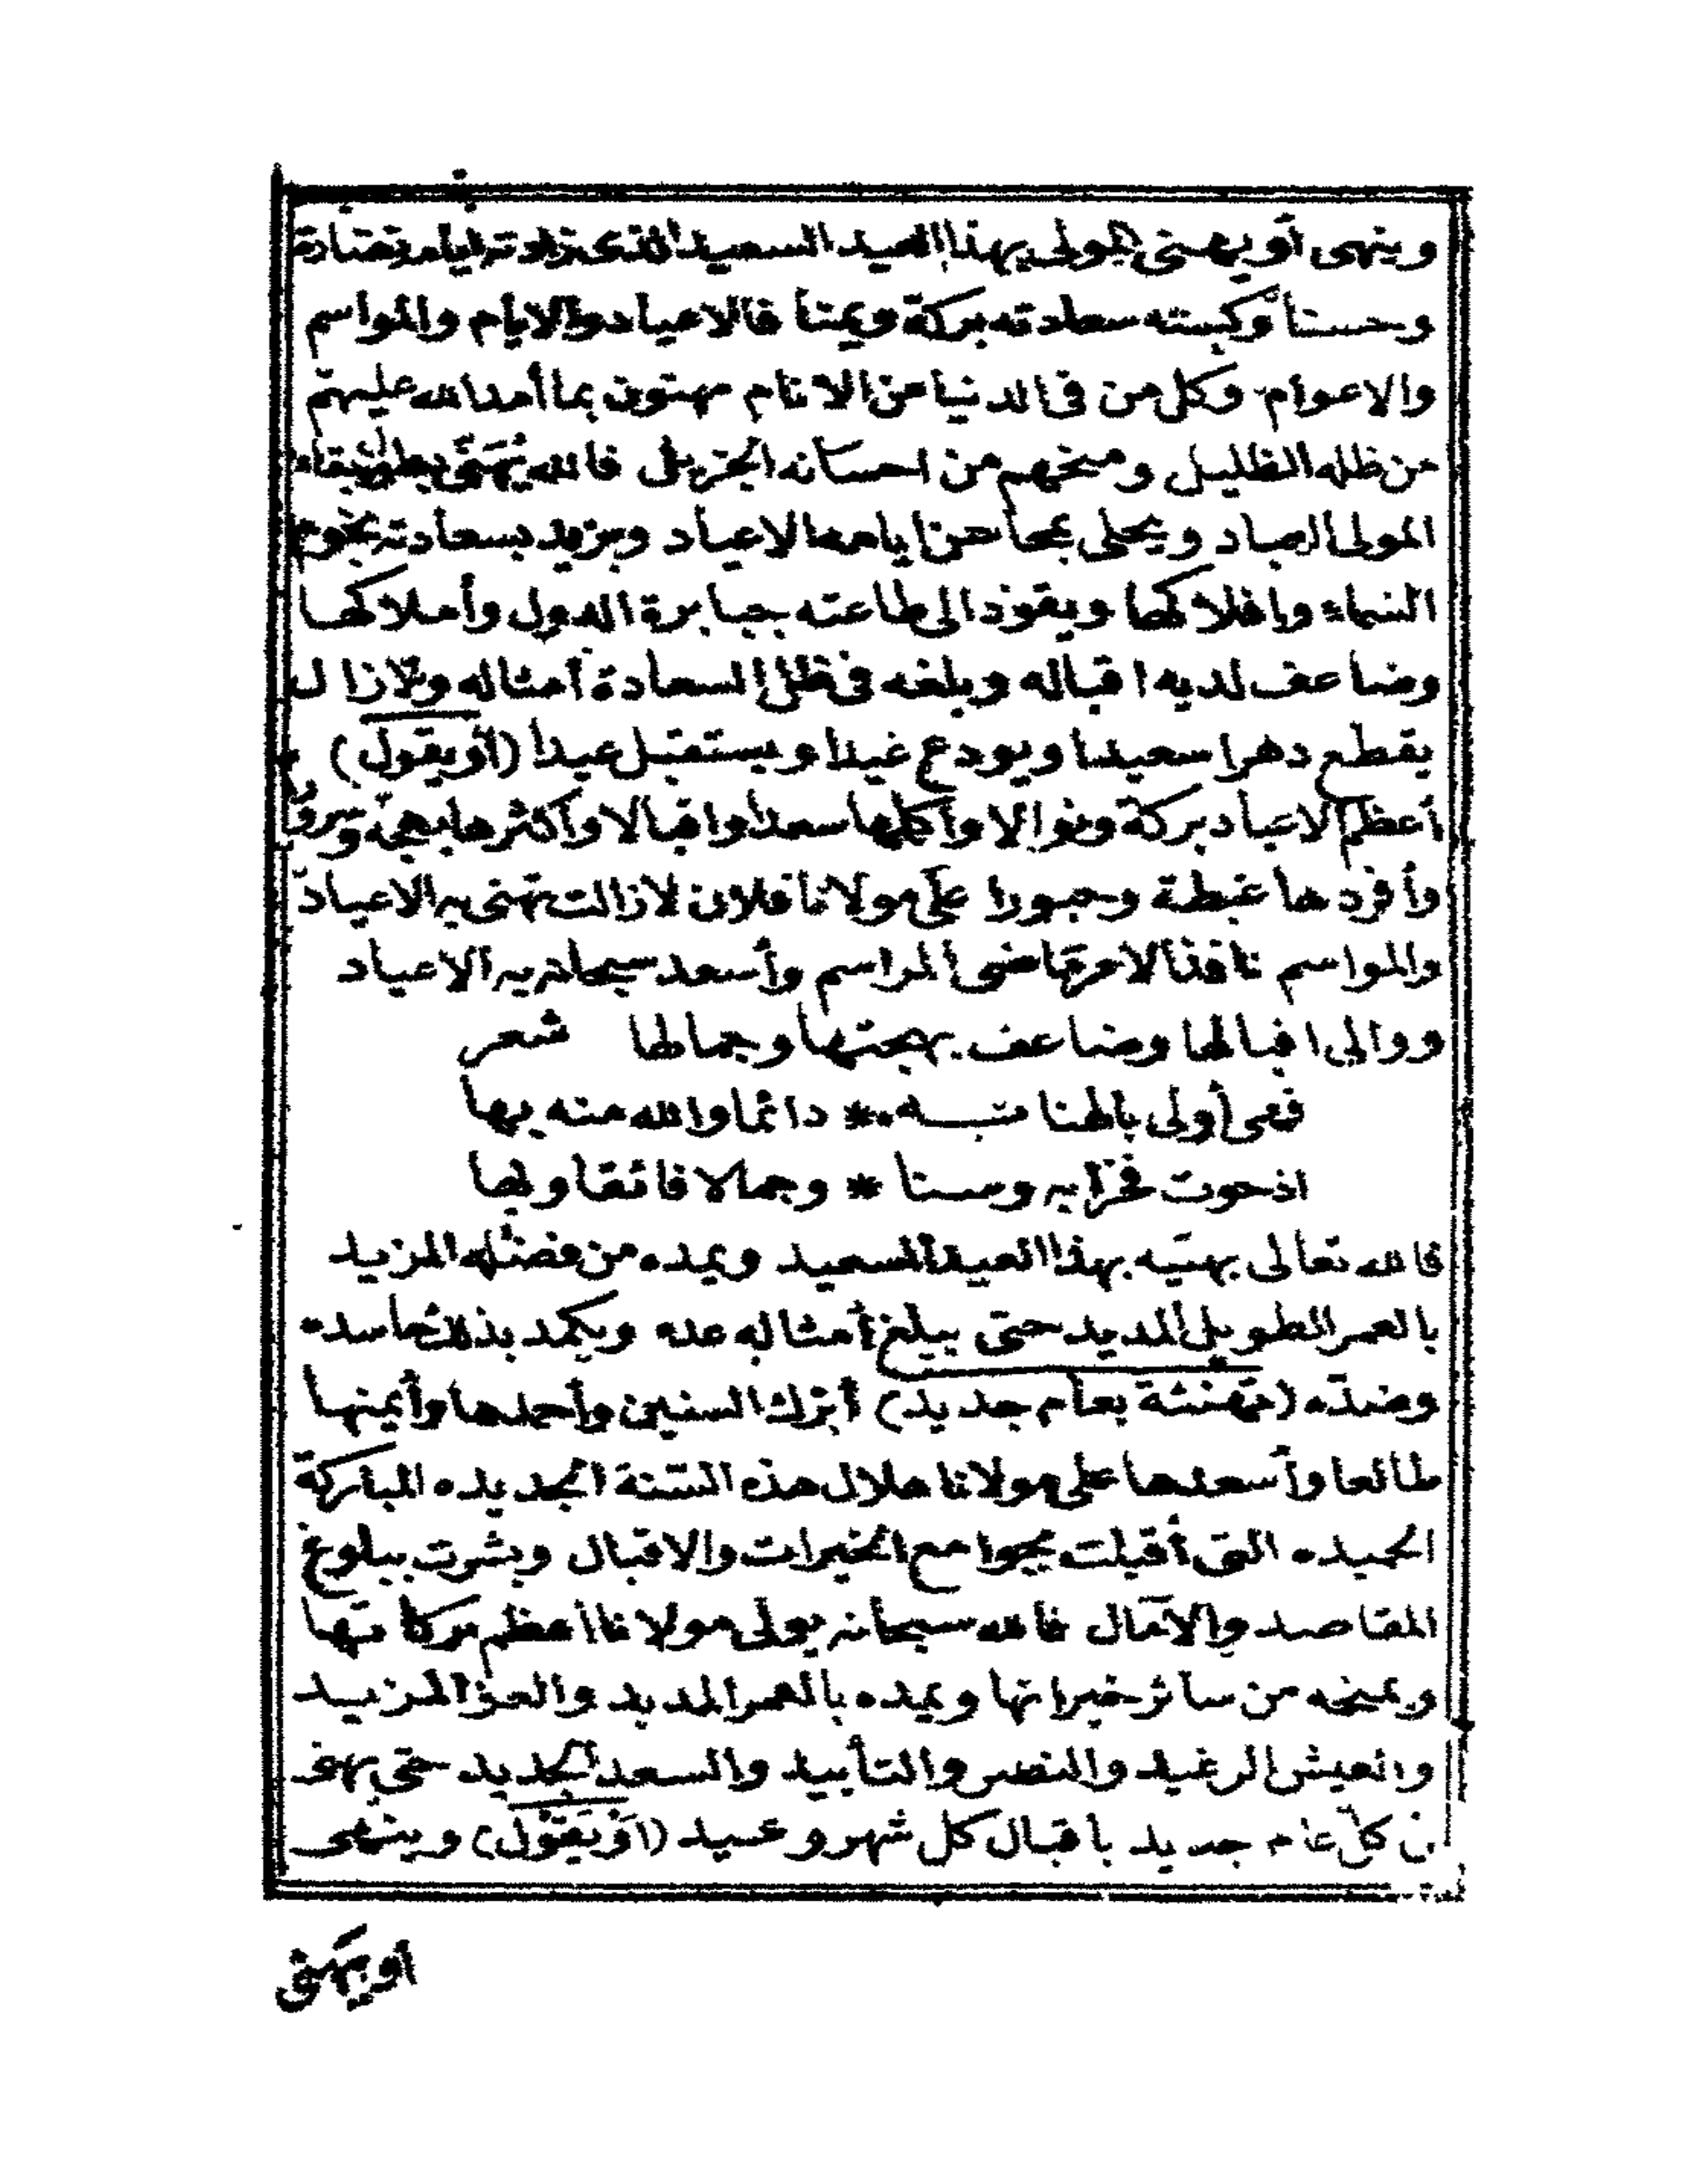 وينهى أو يهنى المولى بهذا العيد السعيد الذى زادته أيامه نضارة
وحسنا وكسته سعادته بركة ويمنا فالاعياد والايام والمواسم
والاعوام وكل من فى الدنيا من الانام مهنون بما أمد الله عليهم
من ظله الظليل ومنحهم من احسانه الجزيل فالله يهنى بطول بقاء
المولى العباد ويحلى بمحاسن ايامه الاعياد ويزيد بسعادته نجوم
السماء وافلاكها ويقود الى طاعته جبابرة الدول وأملاكها
وضاعف لديه اقباله وبلغه فى ظل السعادة أمثاله ولازال
يقطع دهرا سعيدا ويودع عيدا ويستقبل عيدا (أو يقول)
أعظم الاعياد بركة ونوالا وأكملها سعدا واقبالا وأكثرها بهجة وسرورا
وأفردها غبطة وحبورا على مولانا فلان لازالت تهنى به الاعياد
والمواسم نافذ الامر ماضى المراسم وأسعد سبحانه به الاعياد
ووالى اقبالها وضاعف بهجتها وجمالها شعر
فهى أولى بالهنا منـــه * دائما والله منه بها
اذ حوت فخرا به وسنا * وجمالا فائقا وبها
فالله تعالى يهنيه بهذا العيد السعيد ويمده من فضله المزيد
بالعمر الطويل المديد حتى يبلغ أمثاله عده ويكمد بذلك حاسده
وضده (تهنئة بعام جديد) أبرك السنين وأحمدها وأيمنها
طالعا وأسعدها على مولانا هلال هذه السنة الجديده المباركة
الحميده التى أقبلت بجوامع الخيرات والاقبال وبشرت ببلوغ
المقاصد والآمال فالله سبحانه يولى مولانا أعظم بركاتها
ويمنحه من سائر خيراتها ويمده بالعمر المديد والعز المزيـد
والعيش الرغيد والنصر والتأييد والسعد الجديد حتى يهنى
كل عام جديد باقبال كل شهر وعيد (أو يقول) وينهى
أو يهنى